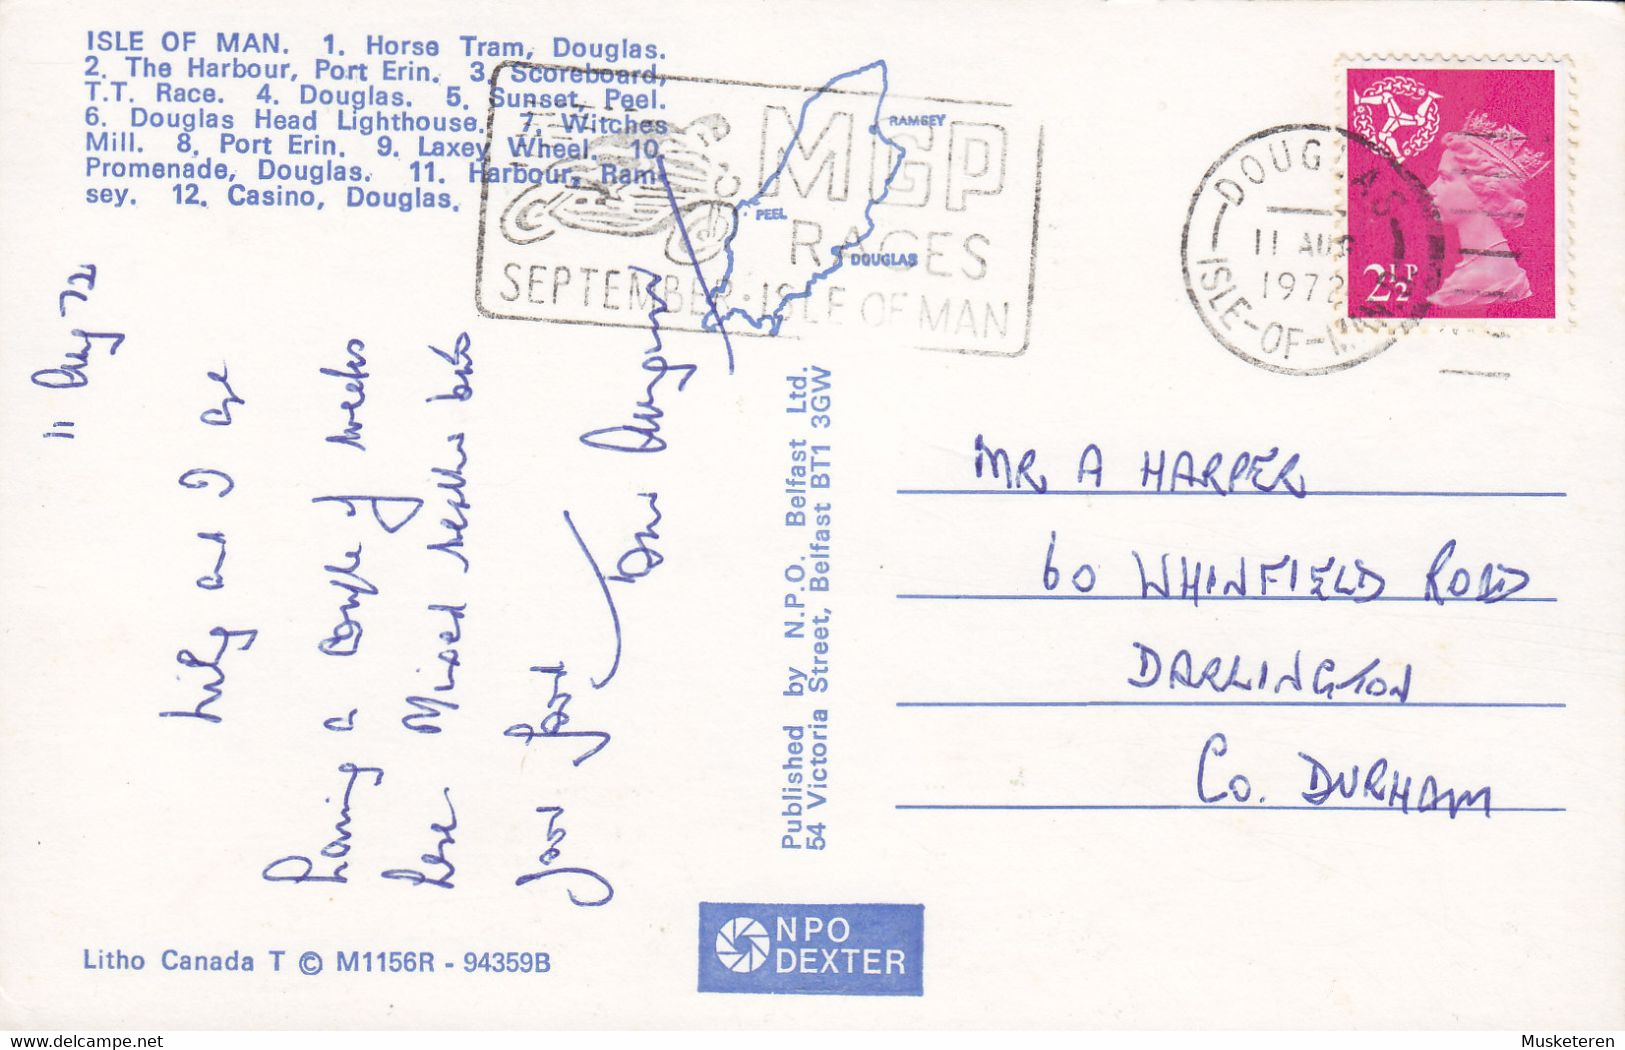 ISLE OF MAN. 1. Horse Tram, Douglas.
2. The Harbour, Port Erin. 3. Scoreboard,
T.T. Race. 4. Douglas. 5. Sunset, Peel.
6. Douglas Head Lighthouse. 7. Witches
Mill. 8. Port Erin. 9. Laxey Wheel. 10.
Promenade, Douglas. 11. Harbour, Ram-
sey. 12. Casino, Douglas.
MGP
RACES
SEPTEMBER · ISLE OF MAN
RAMSEY
PEEL
DOUGLAS
DOUGLAS
11 AUG
1972
ISLE-OF-MAN
2½P
11 Aug 72
Lily and I are
having a couple of weeks
here. Mixed weather but
Published by N.P.O. Belfast Ltd.
54 Victoria Street, Belfast BT1 3GW
MR A HARPER
60 WHINFIELD ROAD
DARLINGTON
CO. DURHAM
Litho Canada T © M1156R - 94359B
NPO
DEXTER
https://www.delcampe.net
Musketeren